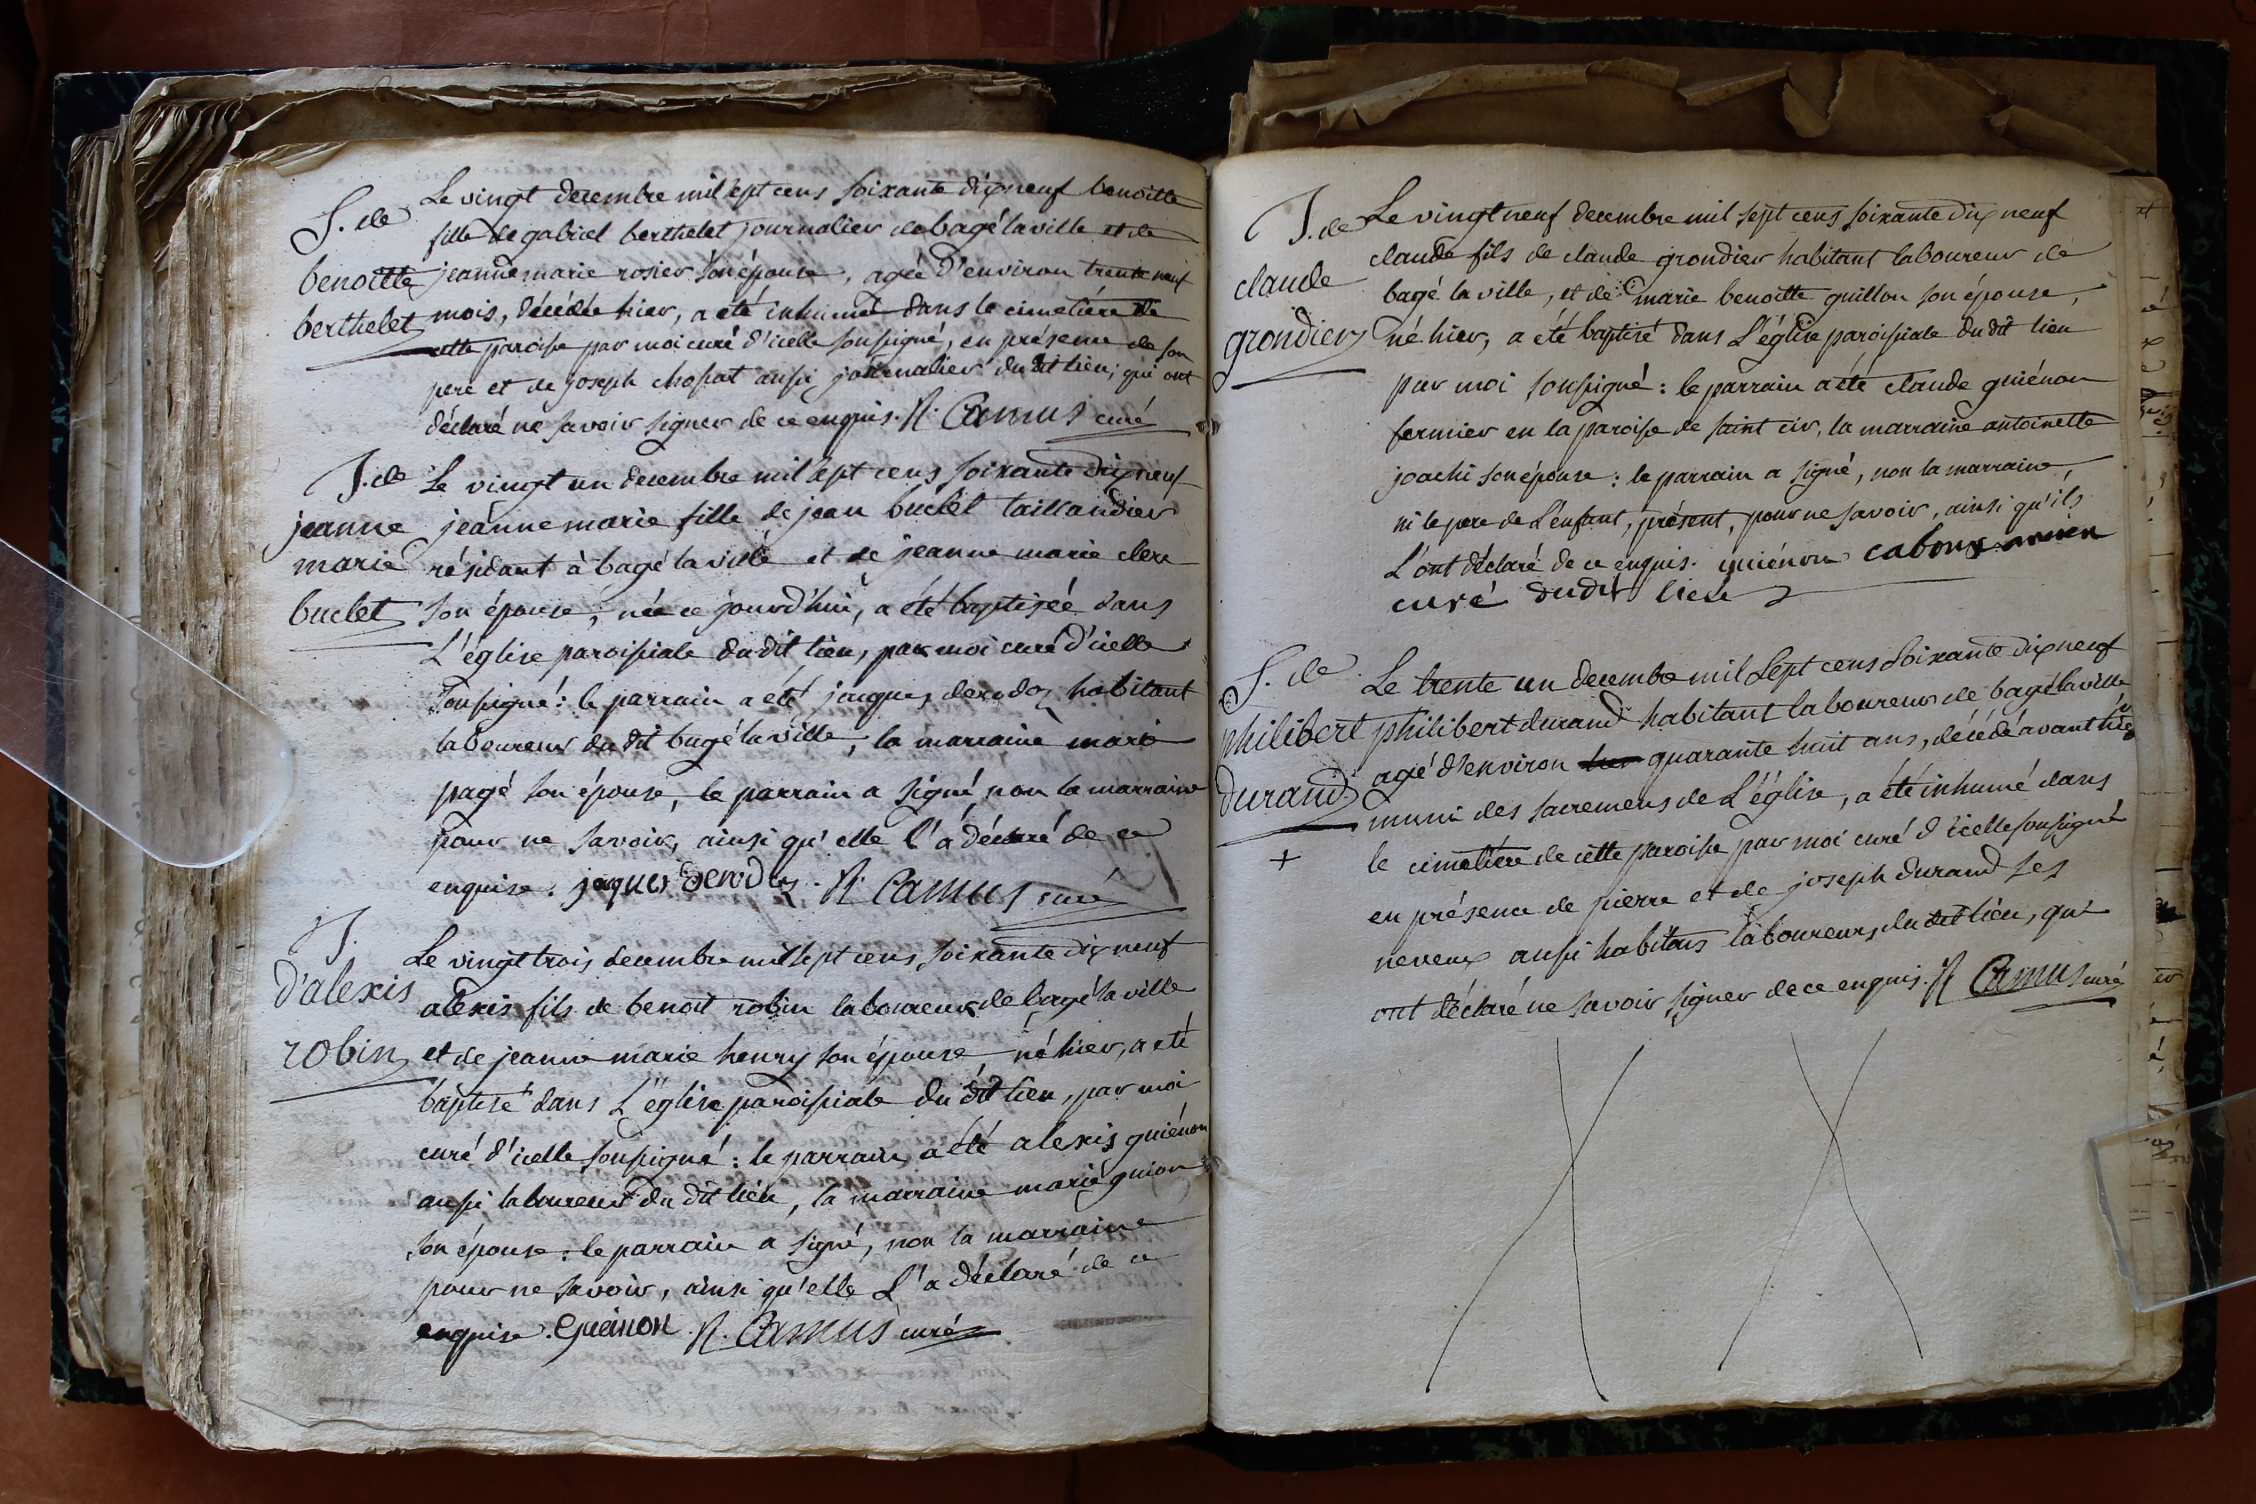 S. de
benoitte
berthelet
Le vingt decembre mil sept cens soixante dix neuf benoitte
fille de gabriel berthelet journalier de bagé la ville et de
jeanne marie rosier son épouse, agée d'environ trente neuf
mois, décédée hier, a été inhumée dans le cimetière de
cette paroisse par moi curé d'icelle soussigné, en présence de son
pere et de joseph chossat aussi journalier du dit lieu, qui ont
déclaré ne savoir signer de ce enquis. Camus curé
J. de
jeanne
marie
buclet
Le vingt un decembre mil sept cens soixante dix neuf
jeanne marie fille de jean buclet taillandier
résidant à bagé la ville et de jeanne marie clerc
son épouse, née ce jourd'hui, a été baptisée dans
L'église paroissiale du dit lieu, par moi curé d'icelle
soussigné: le parrain a été jacques derodes habitant
laboureur du dit bagé la ville, la marraine marie
pagé son épouse, le parrain a signé, non la marraine
pour ne savoir, ainsi qu'elle l'a déclaré de ce
enquise. jaques Derodes. Camus curé
J.
D'alexis
robin
Le vingt trois decembre mil sept cens soixante dix neuf
alexis fils de benoit robin laboureur de bagé la ville
et de jeanne marie henry son épouse, né hier, a été
baptisé dans L'église paroissiale du dit lieu, par moi
curé d'icelle soussigné: le parrain a été alexis guiénon
aussi laboureur du dit lieu, la marraine marie guion
son épouse: le parrain a signé, non la marraine
pour ne savoir, ainsi qu'elle L'a déclaré de ce
enquise. Gueinon. Camus curé
J. de
claude
grondier
Le vingt neuf decembre mil sept cens soixante dix neuf
claude fils de claude grondier habitant laboureur de
bagé la ville, et de marie benoitte guillon son épouse,
né hier, a été baptisé dans L'église paroissiale du dit lieu
par moi soussigné: le parrain a été claude guiénon
fermier en la paroisse de saint cir, la marraine antoinette
joachi son épouse: le parrain a signé, non la marraine,
ni le pere de L'enfant, présent, pour ne savoir, ainsi qu'ils
L'ont déclaré de ce enquis. guiénon caboux ancien
curé dudit lieu
S. de
philibert
durand
+
Le trente un decembre mil sept cens soixante dix neuf
philibert durand habitant laboureur de bagé la ville
agé d'environ quarante huit ans, décédé avant hier
muni des sacremens de L'église, a été inhumé dans
le cimetière de cette paroisse par moi curé d'icelle soussigné
en présence de pierre et de joseph durand ses
neveux aussi habitans laboureurs du dit lieu, qui
ont déclaré ne savoir signer de ce enquis. Camus curé